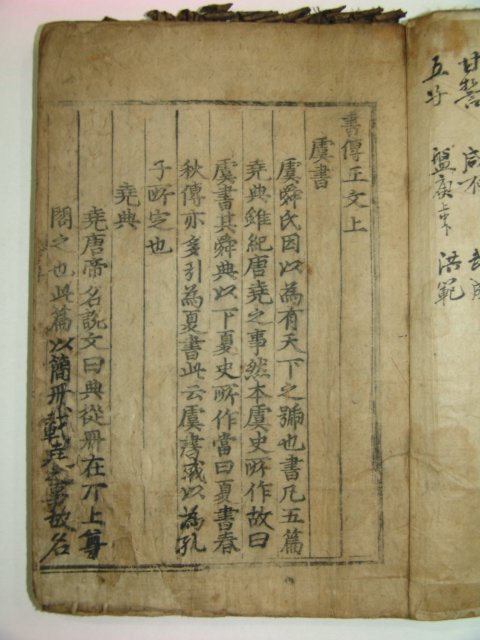 甘誓 咸有 武成
五子 盤庚 洪範
書傳正文上
虞書
虞舜氏因以為有天下之號也書凡五篇
堯典雖紀唐堯之事然本虞史所作故曰
虞書其舜典以下夏史所作當曰夏書春
秋傳亦多引為夏書此云虞書或以為孔
子所定也
堯典
堯唐帝名說文曰典從冊在丌上尊
閣之也此篇以簡冊載堯之事故名